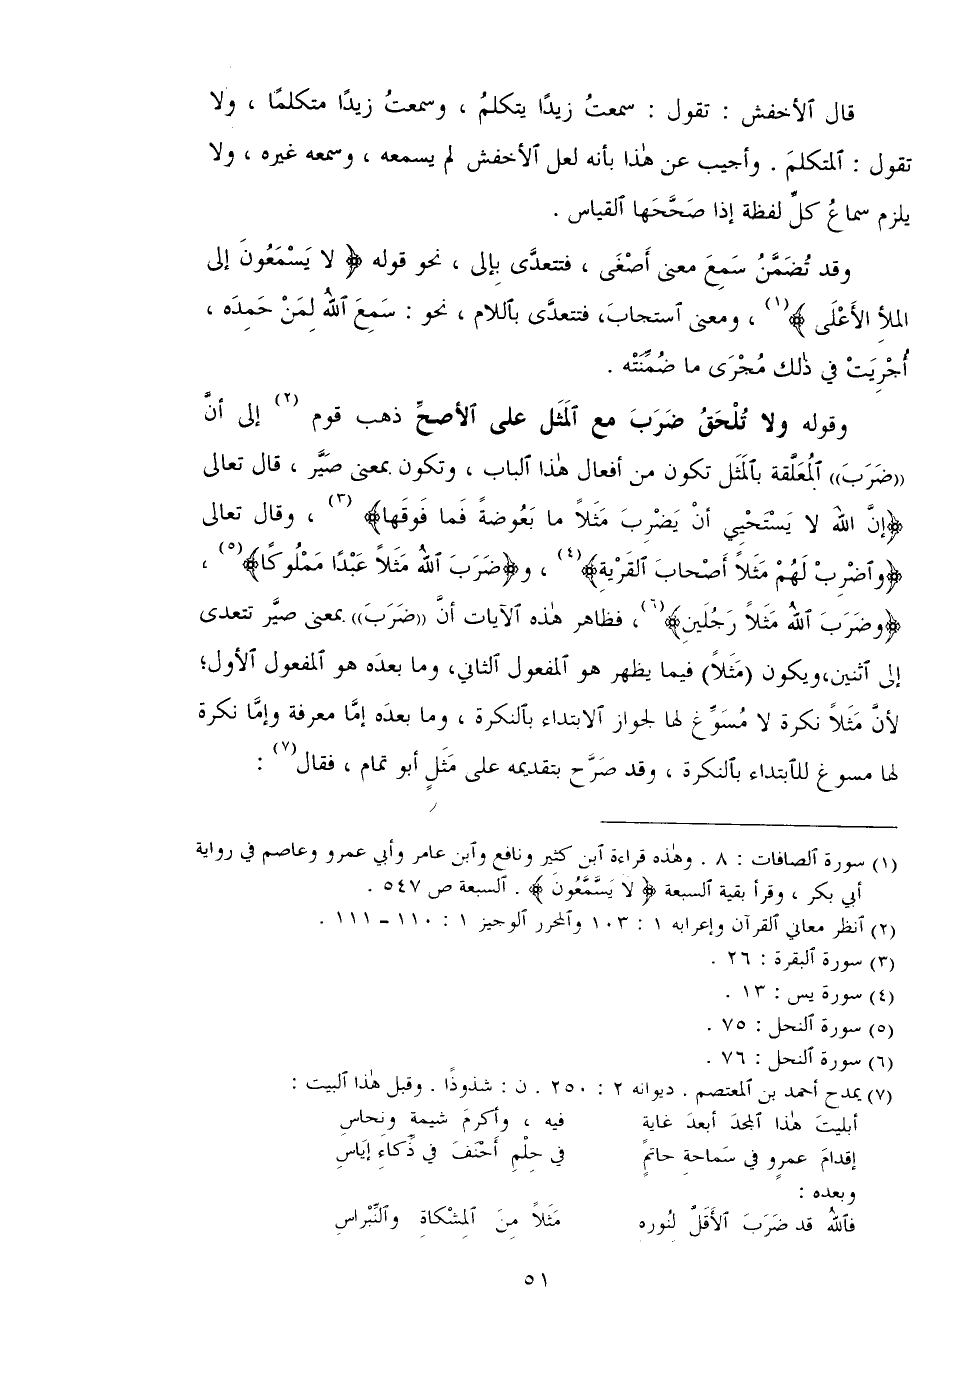 قال ٱلأخفش : تقول : سمعتُ زيدًا يتكلمُ ، وسمعتُ زيدًا متكلمًا ، ولا
تقول : ٱلمتكلمَ . وأجيب عن هٰذا بأنه لعل ٱلأخفش لم يسمعه ، وسمعه غيره ، ولا
يلزم سماعُ كلِّ لفظة إذا صَحَّحَها ٱلقياس .
وقد تُضَمَّنُ سَمِعَ معنى أَصْغَى ، فتتعدَّى بإلى ، نحو قوله ﴿ لا يَسْمَعُونَ إلى
الملأِ الأَعْلَى ﴾(١) ، ومعنى ٱستجابَ، فتتعدَّى بٱللام ، نحو : سَمِعَ ٱللهُ لِمَنْ حَمِدَه ،
أُجْرِيَتْ في ذٰلك مُجْرَى ما ضُمِّنَتْه .
وقوله ولا تُلْحَقُ ضَرَبَ مع ٱلمَثَل على ٱلأصحِّ ذهب قوم (٢) إلى أنَّ
((ضَرَبَ)) ٱلمُعَلَّقة بٱلمَثَل تكون من أفعال هٰذا ٱلباب ، وتكون بمعنى صَيَّر ، قال تعالى
﴿إنَّ اللهَ لا يَسْتَحْيِي أنْ يَضْرِبَ مَثَلاً ما بَعُوضةً فَما فَوقَها﴾ (٣) ، وقال تعالى
﴿وٱضْرِبْ لَهُمْ مَثَلاً أَصْحابَ ٱلقَرْيةِ﴾(٤) ، و﴿ضَرَبَ ٱللهُ مَثَلاً عَبْدًا مَمْلُوكًا﴾(٥) ،
﴿وضَرَبَ ٱللهُ مَثَلاً رَجُلَينِ﴾(٦)، فظاهر هٰذه ٱلآيات أنَّ ((ضَرَبَ)) بمعنى صيَّر تتعدى
إلى ٱثنين،ويكون (مَثَلاً) فيما يظهر هو ٱلمفعول الثاني، وما بعدَه هو ٱلمفعول ٱلأول؛
لأنَّ مَثَلاً نكرة لا مُسَوِّغ لها لجواز ٱلابتداء بٱلنكرة ، وما بعدَه إمَّا معرفة وإمَّا نكرة
لها مسوغ للٱبتداء بٱلنكرة ، وقد صَرَّح بتقديمه على مَثَلٍ أبو تمام ، فقال(٧) :
(١) سورة ٱلصافات : ٨ . وهٰذه قراءة ٱبن كثير ونافع وٱبن عامر وأبي عمرو وعاصم في رواية
أبي بكر ، وقرأ بقية ٱلسبعة ﴿ لا يَسَّمَّعُونَ ﴾ . ٱلسبعة ص ٥٤٧ .
(٢) ٱنظر معاني ٱلقرآن وإعرابه ١ : ١٠٣ وٱلمحرر ٱلوجيز ١ : ١١٠ – ١١١ .
(٣) سورة ٱلبقرة : ٢٦ .
(٤) سورة يس : ١٣ .
(٥) سورة ٱلنحل : ٧٥ .
(٦) سورة ٱلنحل : ٧٦ .
(٧) يمدح أحمد بن ٱلمعتصم . ديوانه ٢ : ٢٥٠ . ن : شذوذًا . وقبل هٰذا ٱلبيت :
أبليتَ هٰذا ٱلمجدَ أبعدَ غايةٍ فيه ، وأكرمَ شيمةٍ ونحاسِ
إقدامَ عمرٍو في سَماحةِ حاتمٍ في حِلْمِ أَحْنَفَ في ذَكاءِ إيَاسِ
وبعده :
فٱللهُ قد ضَرَبَ ٱلأَقَلَّ لنُورِه مَثَلاً مِنَ ٱلمِشْكاةِ وٱلنِّبْراسِ
٥١